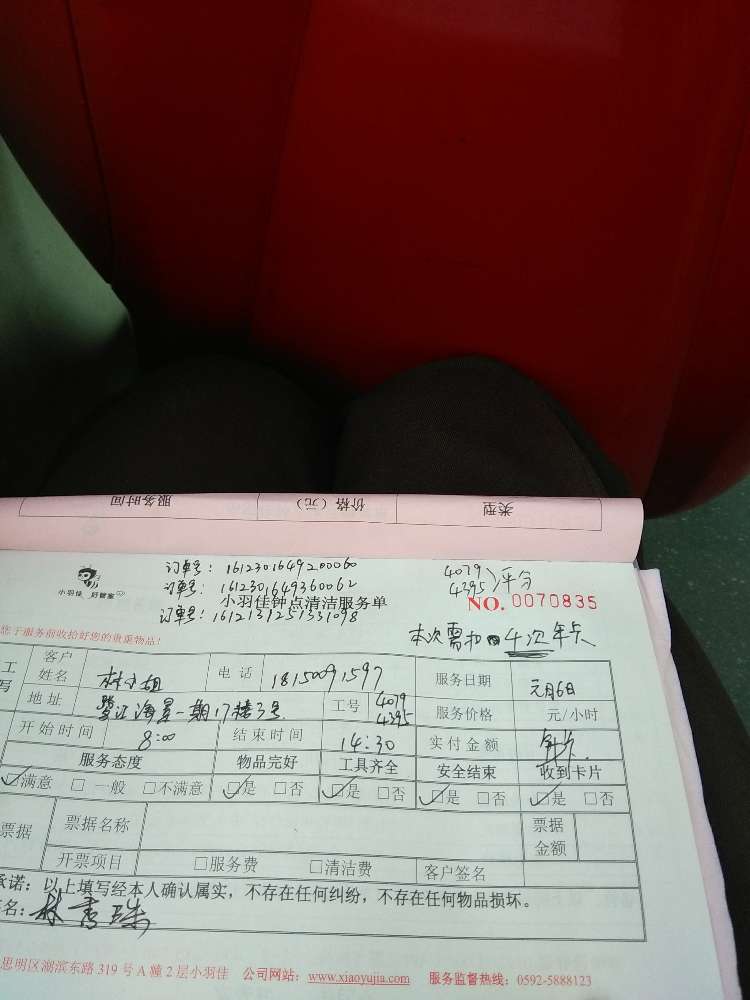 类型 价格（元） 服务时间
订单号：1612301649200060
订单号：1612301649360062
订单号：1612131251331098
4079
4395 平分
小羽佳 好管家
小羽佳钟点清洁服务单
NO. 0070835
您于服务前收拾好您的贵重物品！
本次需扣 4次年卡
工 客户姓名 林小姐 电话 18150091597 服务日期 元月6日
写 地址 鹭江海景一期17楼3号 工号 4079 4395 服务价格 元/小时
开始时间 8:00 结束时间 14:30 实付金额 年卡
服务态度 物品完好 工具齐全 安全结束 收到卡片
☑满意 □一般 □不满意 ☑是 □否 ☑是 □否 ☑是 □否 ☑是 □否
票据 票据名称 票据金额
开票项目 □服务费 □清洁费 客户签名
承诺：以上填写经本人确认属实，不存在任何纠纷，不存在任何物品损坏。
名：林
思明区湖滨东路 319 号 A 幢 2 层小羽佳 公司网站：www.xiaoyujia.com 服务监督热线：0592-5888123